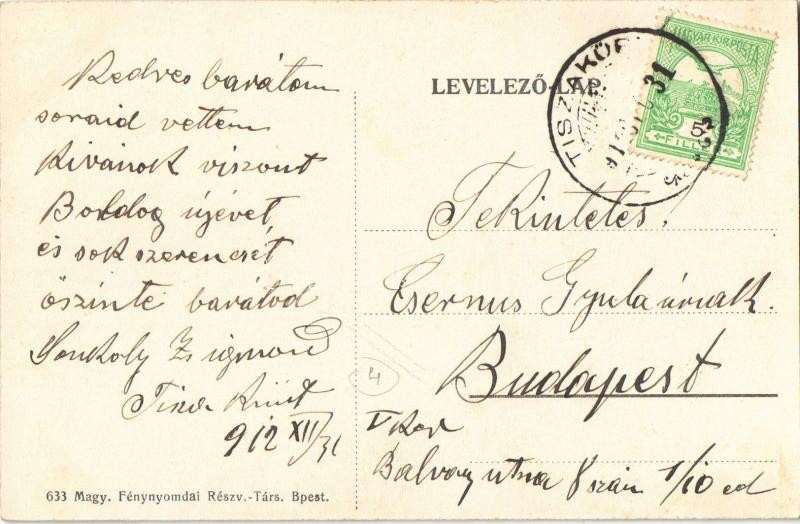 Kedves barátom
soraid vettem
Kivánok viszont
Boldog újévet
és sok szerencsét
őszinte barátod
Zsigmond
912 XII/31
633 Magy. Fénynyomdai Részv.-Társ. Bpest.
LEVELEZŐ-LAP.
MAGYAR KIR. POSTA
5
FILLÉR
TISZAKÜR
31
Tekintetes!
Csernus Gyula úrnak.
Budapest
V Ker
Balvány utca 8 szám 1/10 ed
4